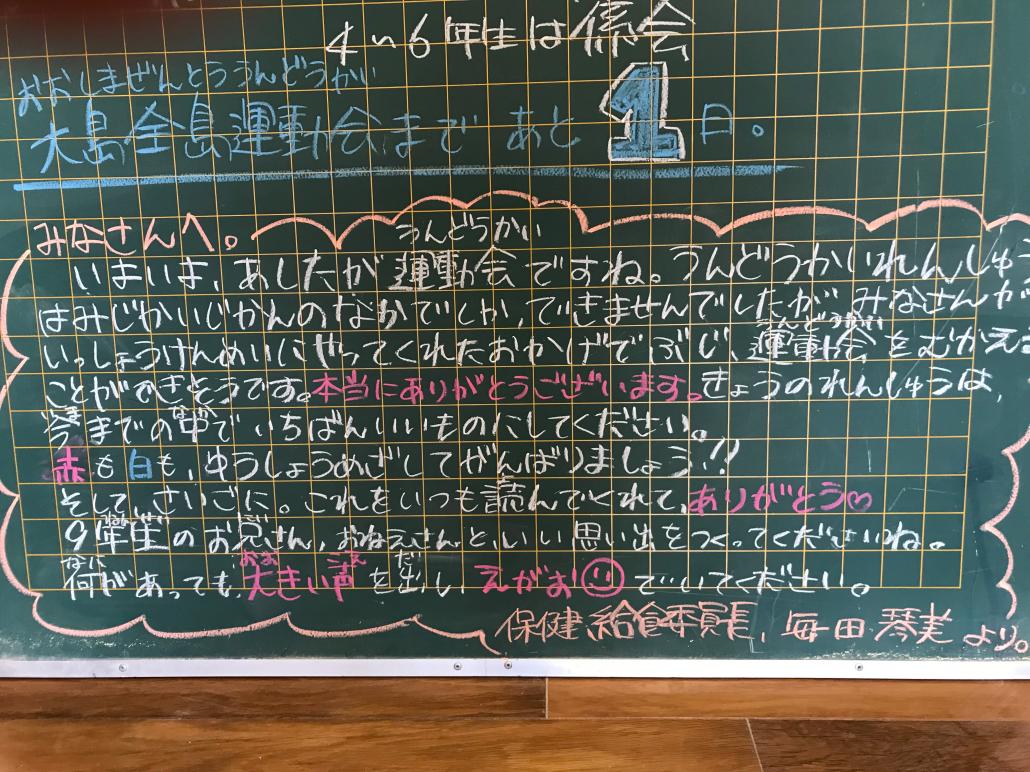 4〜6年生は係会
おおしまぜんとううんどうかい
大島全島運動会まで あと 1 日。
みなさんへ。
うんどうかい
いよいよ、あしたが運動会ですね。うんどうかいれんしゅう
はみじかいじかんのなかでしか、できませんでしたが、みなさんが
うんどうかい
いっしょうけんめいにやってくれたおかげでぶじ、運動会をむかえる
ことができそうです。本当にありがとうございます。きょうのれんしゅうは、
いま なか
今までの中でいちばんいいものにしてください。
赤も白も、ゆうしょうめざしてがんばりましょう!!
そして、さいごに。これをいつも読んでくれて、ありがとう♡
ねんせい にい
9年生のお兄さん、おねえさんと、いい思い出をつくってくださいね。
なに おお こえ だ
何があっても、大きい声を出し えがお☺でいてください。
保健給食委員長、毎田琴美より。